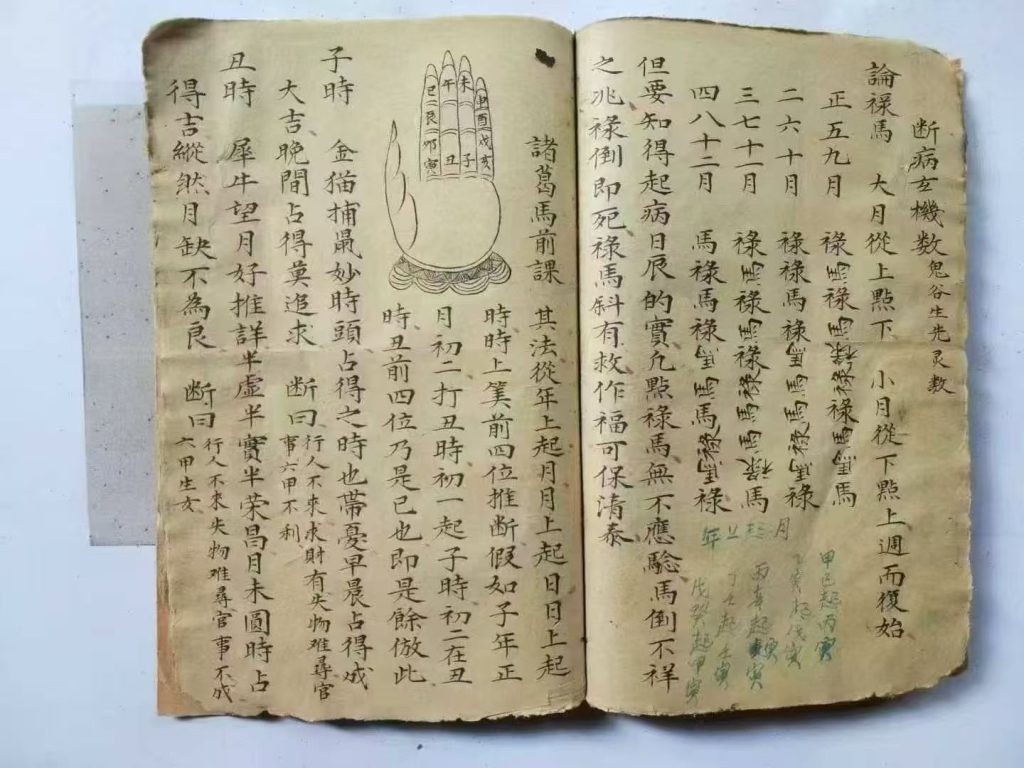 断病玄機数 鬼谷先生灵数
論禄馬 大月從上點下 小月從下點上週而復始
正五九月 禄馬禄馬禄禄馬馬
二六十月 禄馬禄馬馬禄馬禄
三七十一月 禄馬禄馬禄馬禄馬
四八十二月 馬禄馬禄馬馬馬禄馬禄
但要知得起病日辰的實凢點禄馬無不應驗馬倒不祥
之兆禄倒即死禄馬斜有救作福可保清泰
年上起月
甲己起丙寅
乙庚起戊寅
丙辛起庚寅
丁壬起壬寅
戊癸起甲寅
諸葛馬前課 其法從年上起月月上起日日上起
時時上筭前四位推断假如子年正
月初二打丑時初一起子時初二在丑
時丑前四位乃是巳也即是餘倣此
申酉戌亥
未子
午丑
巳辰卯寅
子時 金猫捕鼠妙時頭占得之時也帶憂早晨占得成
大吉晚間占得莫追求 断曰 行人不來求財有失物难尋官
事六甲不利
丑時 犀牛望月好推詳半虚半實半荣昌月未圓時占
得吉縱然月缺不為良 断曰 行人不來失物难尋官事不成
六甲生女